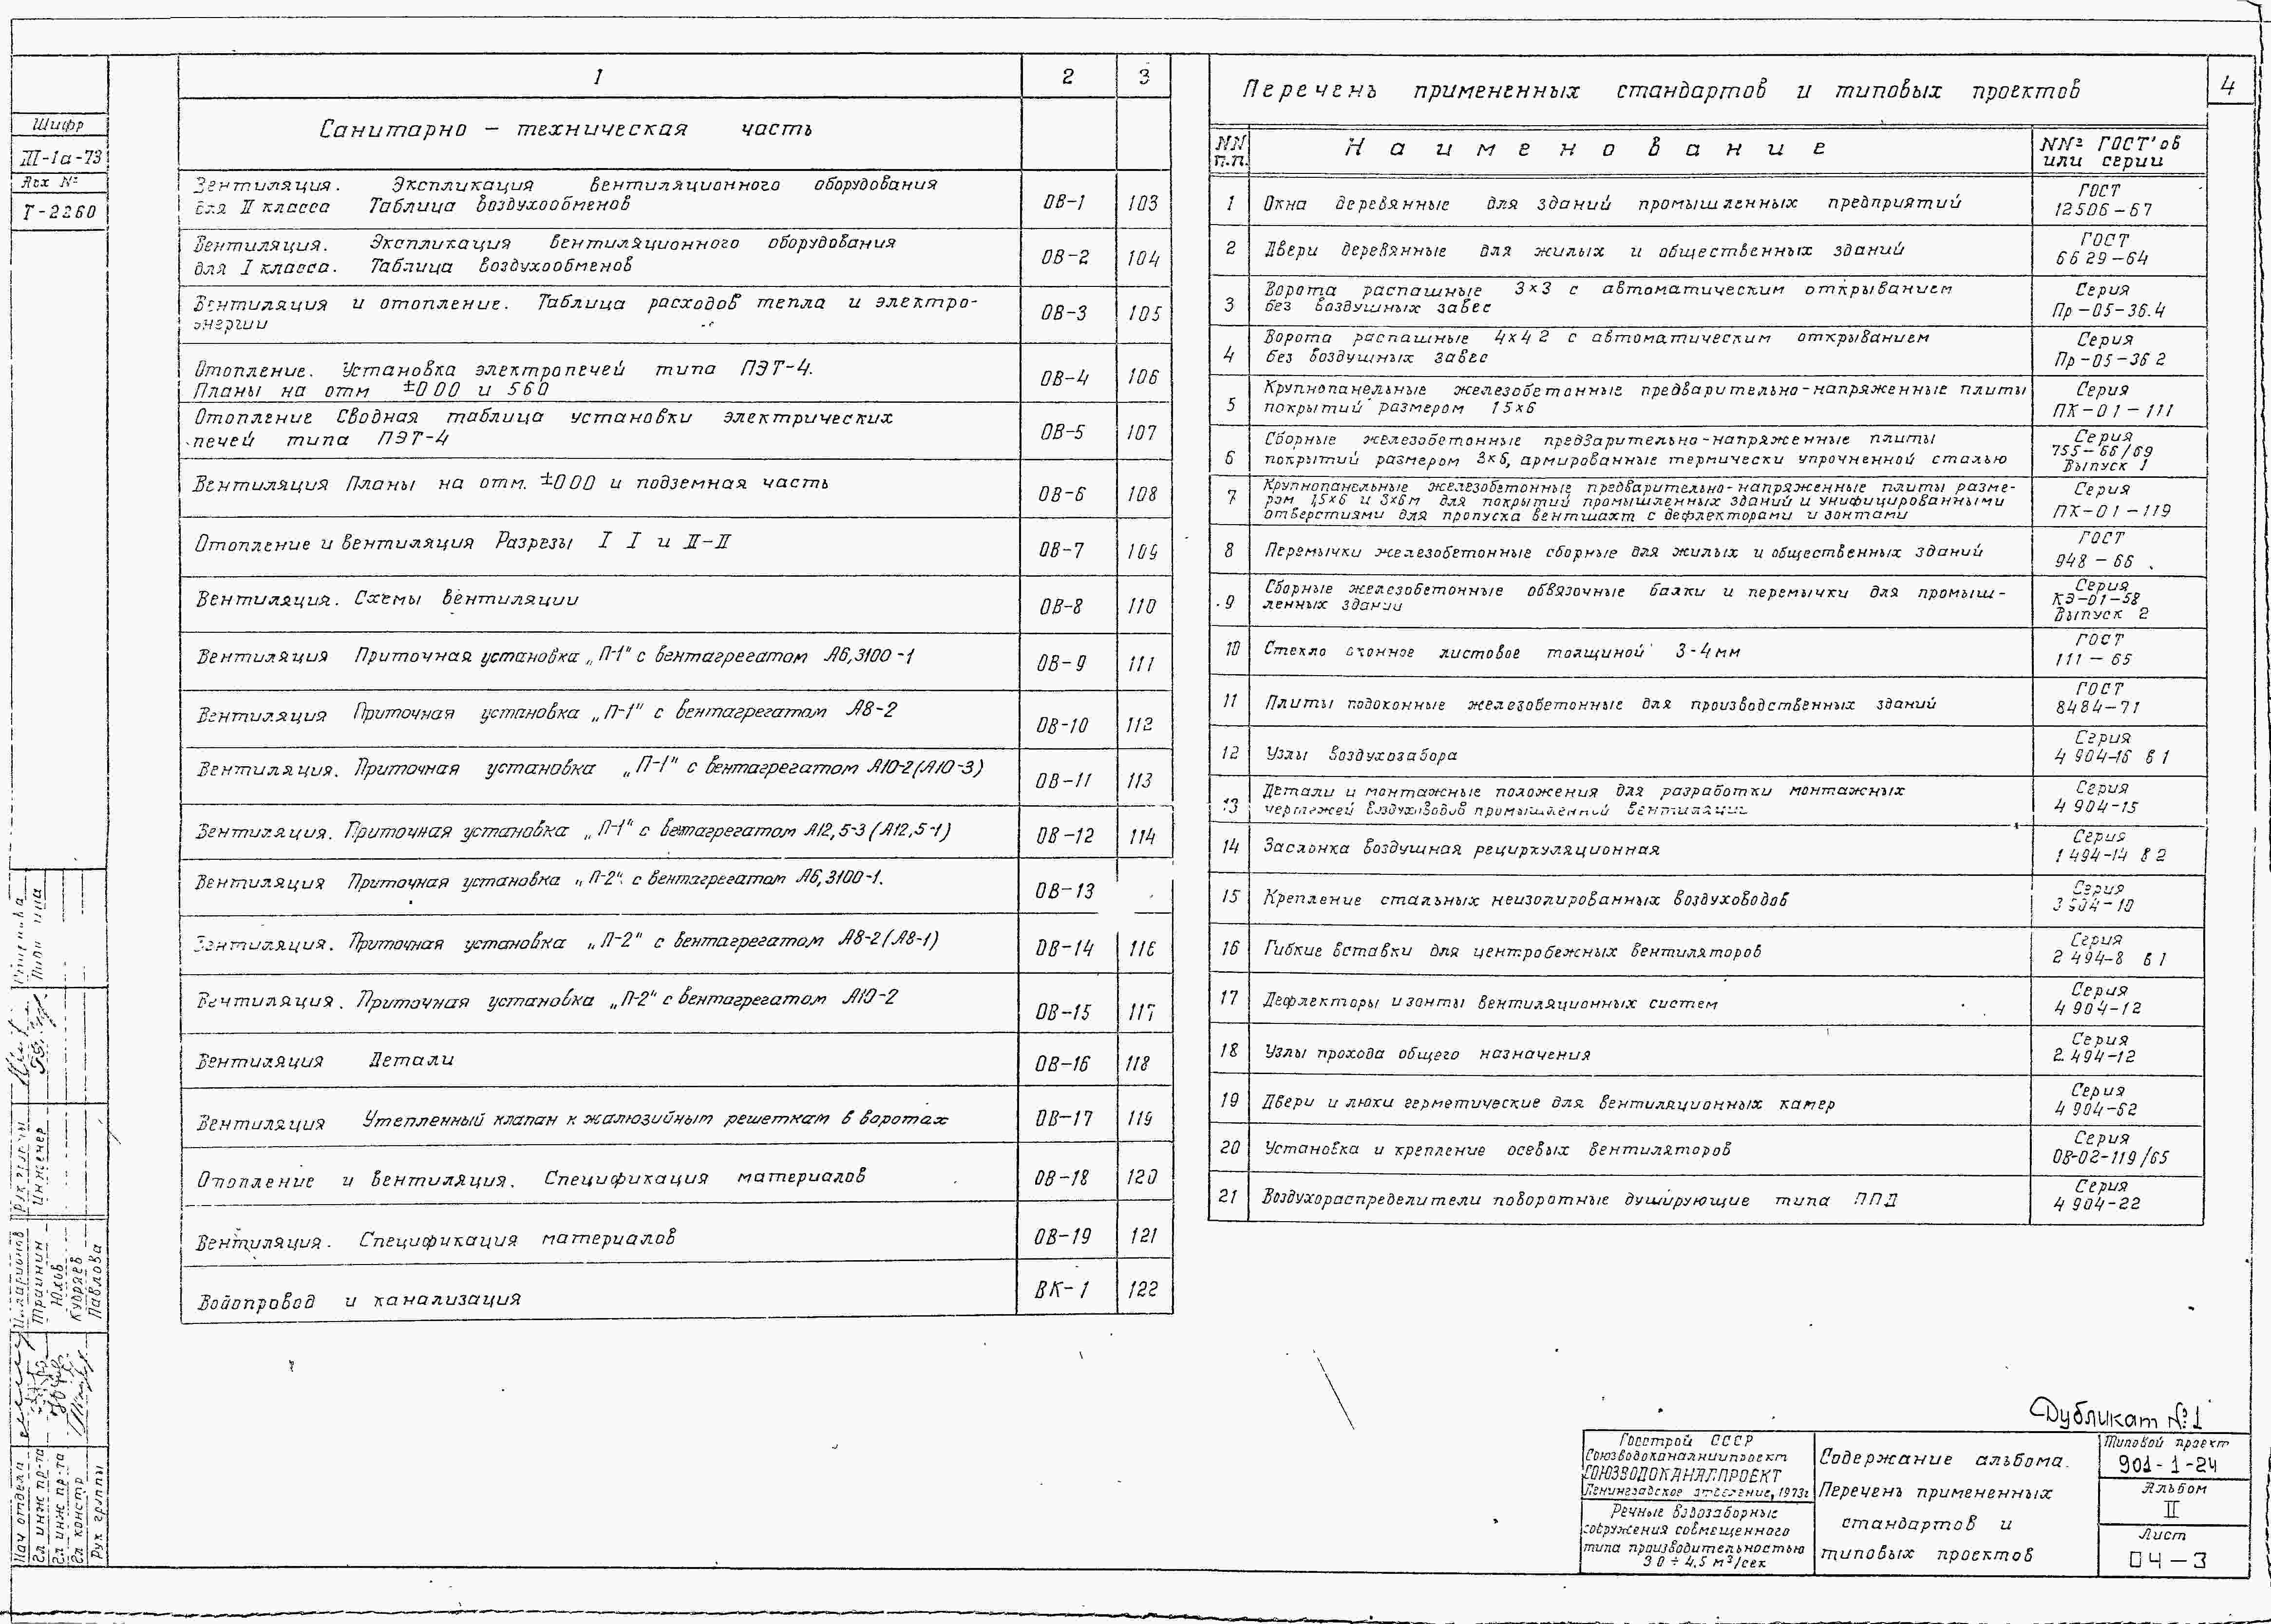 4
Шифр
III-1а-73
Арх №
Т-2260
1 2 3
Санитарно - техническая часть
Вентиляция. Экспликация вентиляционного оборудования
для II класса Таблица воздухообменов
ОВ-1 103
Вентиляция. Экспликация вентиляционного оборудования
для I класса. Таблица воздухообменов
ОВ-2 104
Вентиляция и отопление. Таблица расходов тепла и электро-
энергии
ОВ-3 105
Отопление. Установка электропечей типа ПЭТ-4.
Планы на отм ±0 00 и 5 60
ОВ-4 106
Отопление Сводная таблица установки электрических
печей типа ПЭТ-4
ОВ-5 107
Вентиляция Планы на отм. ±0 00 и подземная часть ОВ-6 108
Отопление и вентиляция Разрезы I I и II-II ОВ-7 109
Вентиляция. Схемы вентиляции ОВ-8 110
Вентиляция Приточная установка „П-1" с вентагрегатом А6,3100-1 ОВ-9 111
Вентиляция Приточная установка „П-1" с вентагрегатом А8-2 ОВ-10 112
Вентиляция. Приточная установка „П-1" с вентагрегатом А10-2(А10-3) ОВ-11 113
Вентиляция. Приточная установка „П-1" с ветагрегатом А12,5-3 (А12,5-1) ОВ-12 114
Вентиляция Приточная установка „П-2". с вентагрегатом А6,3100-1. ОВ-13
Вентиляция. Приточная установка „П-2" с вентагрегатом А8-2(А8-1) ОВ-14 116
Вентиляция. Приточная установка „П-2" с вентагрегатом А10-2 ОВ-15 117
Вентиляция Детали ОВ-16 118
Вентиляция Утепленный клапан к жалюзийным решеткам в воротах ОВ-17 119
Отопление и вентиляция. Спецификация материалов ОВ-18 120
Вентиляция. Спецификация материалов ОВ-19 121
Водопровод и канализация ВК-1 122
Перечень примененных стандартов и типовых проектов
NN
п.п.
Наименование
NNº ГОСТ'ов
или серии
1 Окна деревянные для зданий промышленных предприятий
ГОСТ
12506-67
2 Двери деревянные для жилых и общественных зданий
ГОСТ
6629-64
3 Ворота распашные 3×3 с автоматическим открыванием
без воздушных завес
Серия
Пр-05-36.4
4 Ворота распашные 4×4 2 с автоматическим открыванием
без воздушных завес
Серия
Пр-05-36 2
5 Крупнопанельные железобетонные предварительно-напряженные плиты
покрытий размером 1 5×6
Серия
ПК-01-111
6 Сборные железобетонные предварительно-напряженные плиты
покрытий размером 3×6, армированные термически упрочненной сталью
Серия
755-66/69
Выпуск 1
7 Крупнопанельные железобетонные предварительно-напряженные плиты разме-
ром 1,5×6 и 3×6м для покрытий промышленных зданий и унифицированными
отверстиями для пропуска вентшахт с дефлекторами и зонтами
Серия
ПК-01-119
8 Перемычки железобетонные сборные для жилых и общественных зданий
ГОСТ
948-66
9 Сборные железобетонные обвязочные балки и перемычки для промыш-
ленных здании
Серия
КЭ-01-58
Выпуск 2
10 Стекло оконное листовое толщиной 3-4мм
ГОСТ
111-65
11 Плиты подоконные железобетонные для производственных зданий
ГОСТ
8484-71
12 Узлы воздухозабора
Серия
4 904-16 в 1
13 Детали и монтажные положения для разработки монтажных
чертежей воздуховодов промышленной вентиляции
Серия
4 904-15
14 Заслонка воздушная рециркуляционная
Серия
1 494-14 в 2
15 Крепление стальных неизолированных воздуховодов
Серия
3 904-10
16 Гибкие вставки для центробежных вентиляторов
Серия
2 494-8 в 1
17 Дефлекторы и зонты вентиляционных систем
Серия
4 904-12
18 Узлы прохода общего назначения
Серия
2.494-12
19 Двери и люки герметические для вентиляционных камер
Серия
4 904-62
20 Установка и крепление осевых вентиляторов
Серия
ОВ-02-119/65
21 Воздухораспределители поворотные душирующие типа ППД
Серия
4 904-22
Инженер
Илларионов
Трайнин
Юхов
Кудряев
Павлова
Нач отдела
Гл инж пр-та
Гл инж пр-та
Гл констр
Рук группы
Дубликат №1
Госстрой СССР
Союзводоканалниипроект
СОЮЗВОДОКАНАЛПРОЕКТ
Ленинградское отделение, 1973г
Речные водозаборные
сооружения совмещенного
типа производительностью
3 0 ÷ 4,5 м³/сек
Содержание альбома.
Перечень примененных
стандартов и
типовых проектов
Типовой проект
901-1-24
Альбом
II
Лист
ОЧ-3